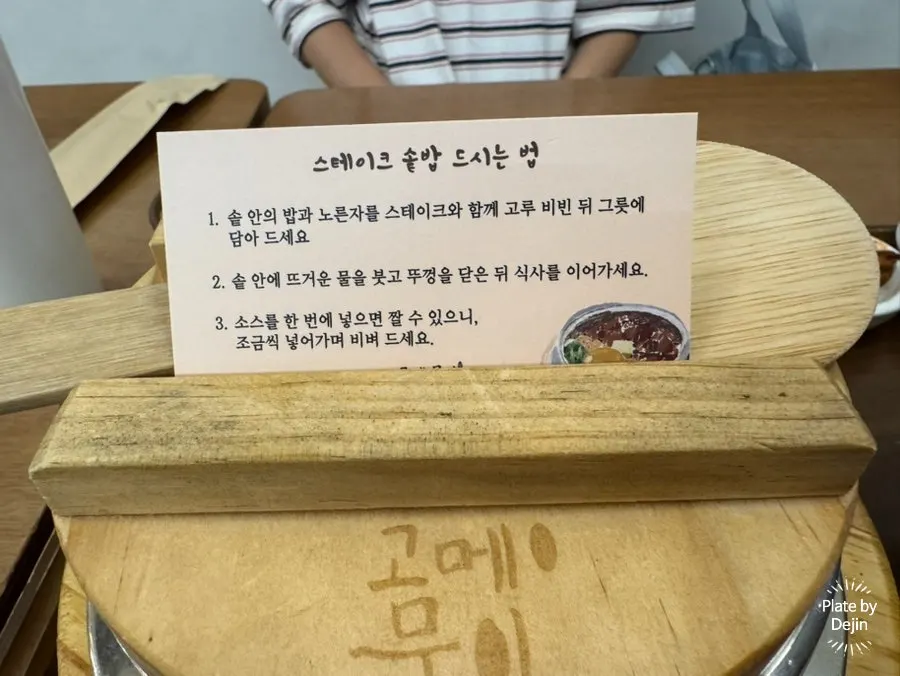 스테이크 솥밥 드시는 법
1. 솥 안의 밥과 노른자를 스테이크와 함께 고루 비빈 뒤 그릇에
담아 드세요
2. 솥 안에 뜨거운 물을 붓고 뚜껑을 닫은 뒤 식사를 이어가세요.
3. 소스를 한 번에 넣으면 짤 수 있으니,
조금씩 넣어가며 비벼 드세요.
곰메이
Plate by
Dejin